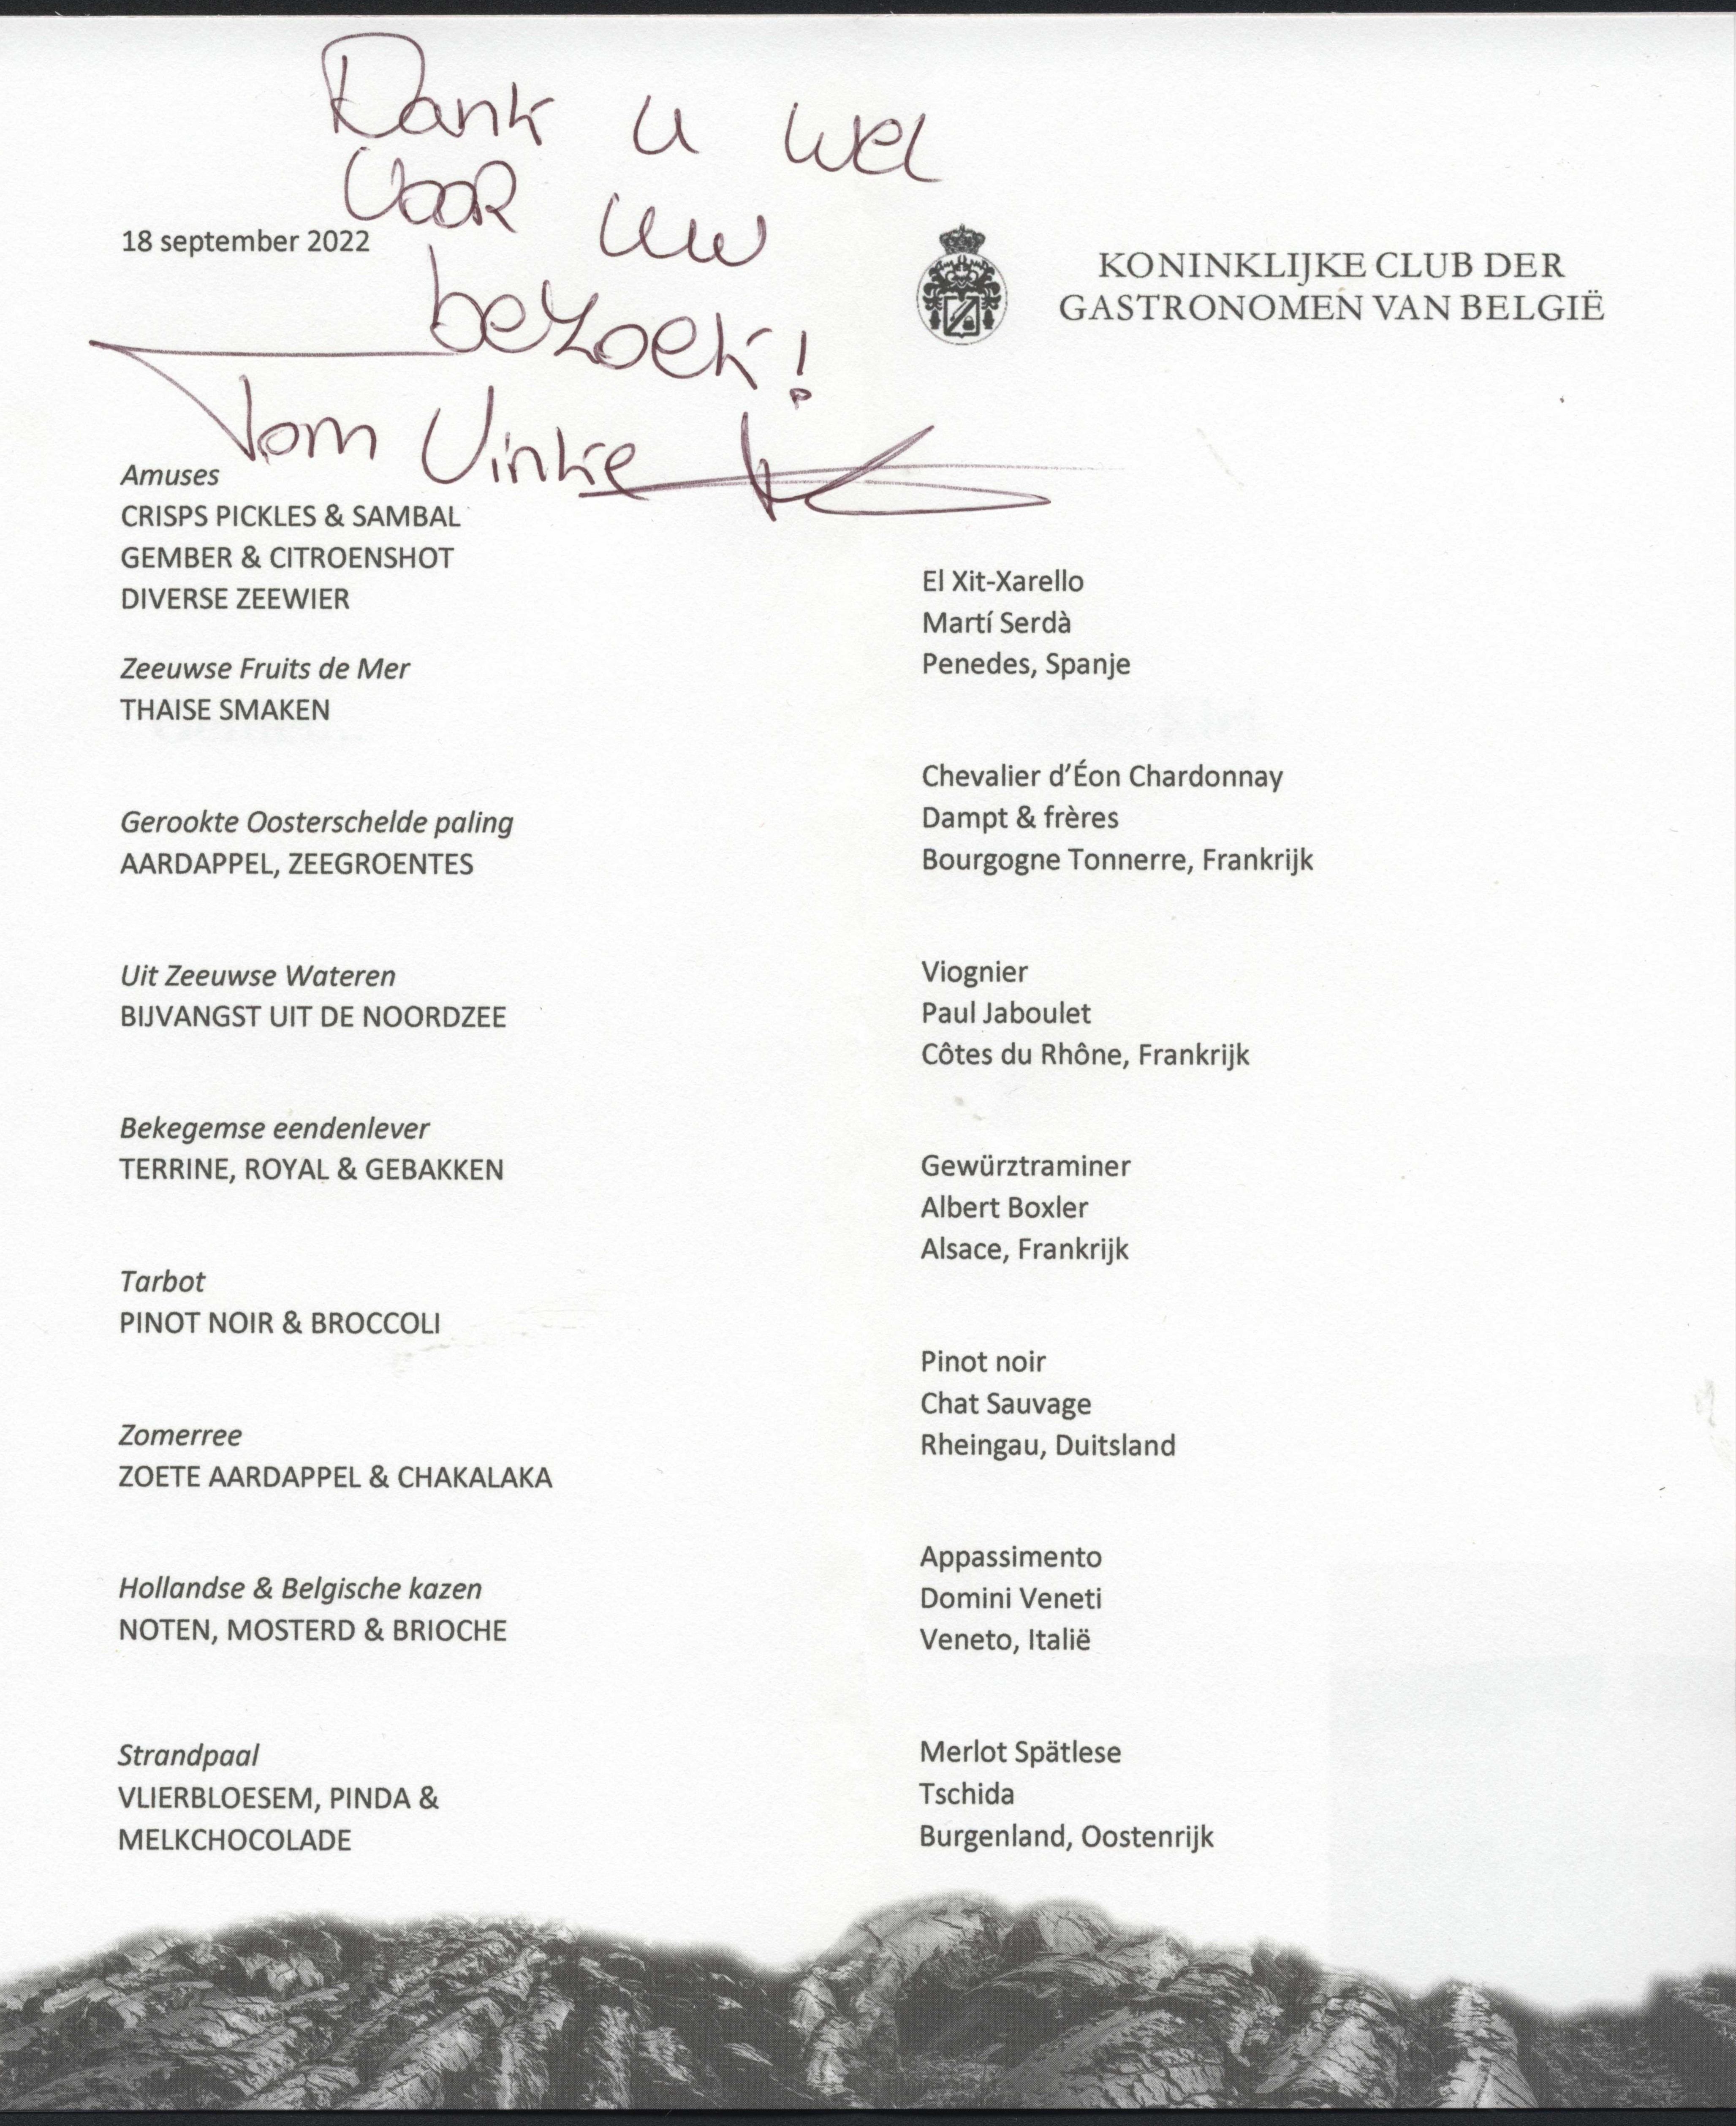 Dank u wel
voor uw
bezoek!
Tom Vinke
18 september 2022
KONINKLIJKE CLUB DER
GASTRONOMEN VAN BELGIË
Amuses
CRISPS PICKLES & SAMBAL
GEMBER & CITROENSHOT
DIVERSE ZEEWIER
Zeeuwse Fruits de Mer
THAISE SMAKEN
Gerookte Oosterschelde paling
AARDAPPEL, ZEEGROENTES
Uit Zeeuwse Wateren
BIJVANGST UIT DE NOORDZEE
Bekegemse eendenlever
TERRINE, ROYAL & GEBAKKEN
Tarbot
PINOT NOIR & BROCCOLI
Zomerree
ZOETE AARDAPPEL & CHAKALAKA
Hollandse & Belgische kazen
NOTEN, MOSTERD & BRIOCHE
Strandpaal
VLIERBLOESEM, PINDA &
MELKCHOCOLADE
El Xit-Xarello
Martí Serdà
Penedes, Spanje
Chevalier d’Éon Chardonnay
Dampt & frères
Bourgogne Tonnerre, Frankrijk
Viognier
Paul Jaboulet
Côtes du Rhône, Frankrijk
Gewürztraminer
Albert Boxler
Alsace, Frankrijk
Pinot noir
Chat Sauvage
Rheingau, Duitsland
Appassimento
Domini Veneti
Veneto, Italië
Merlot Spätlese
Tschida
Burgenland, Oostenrijk